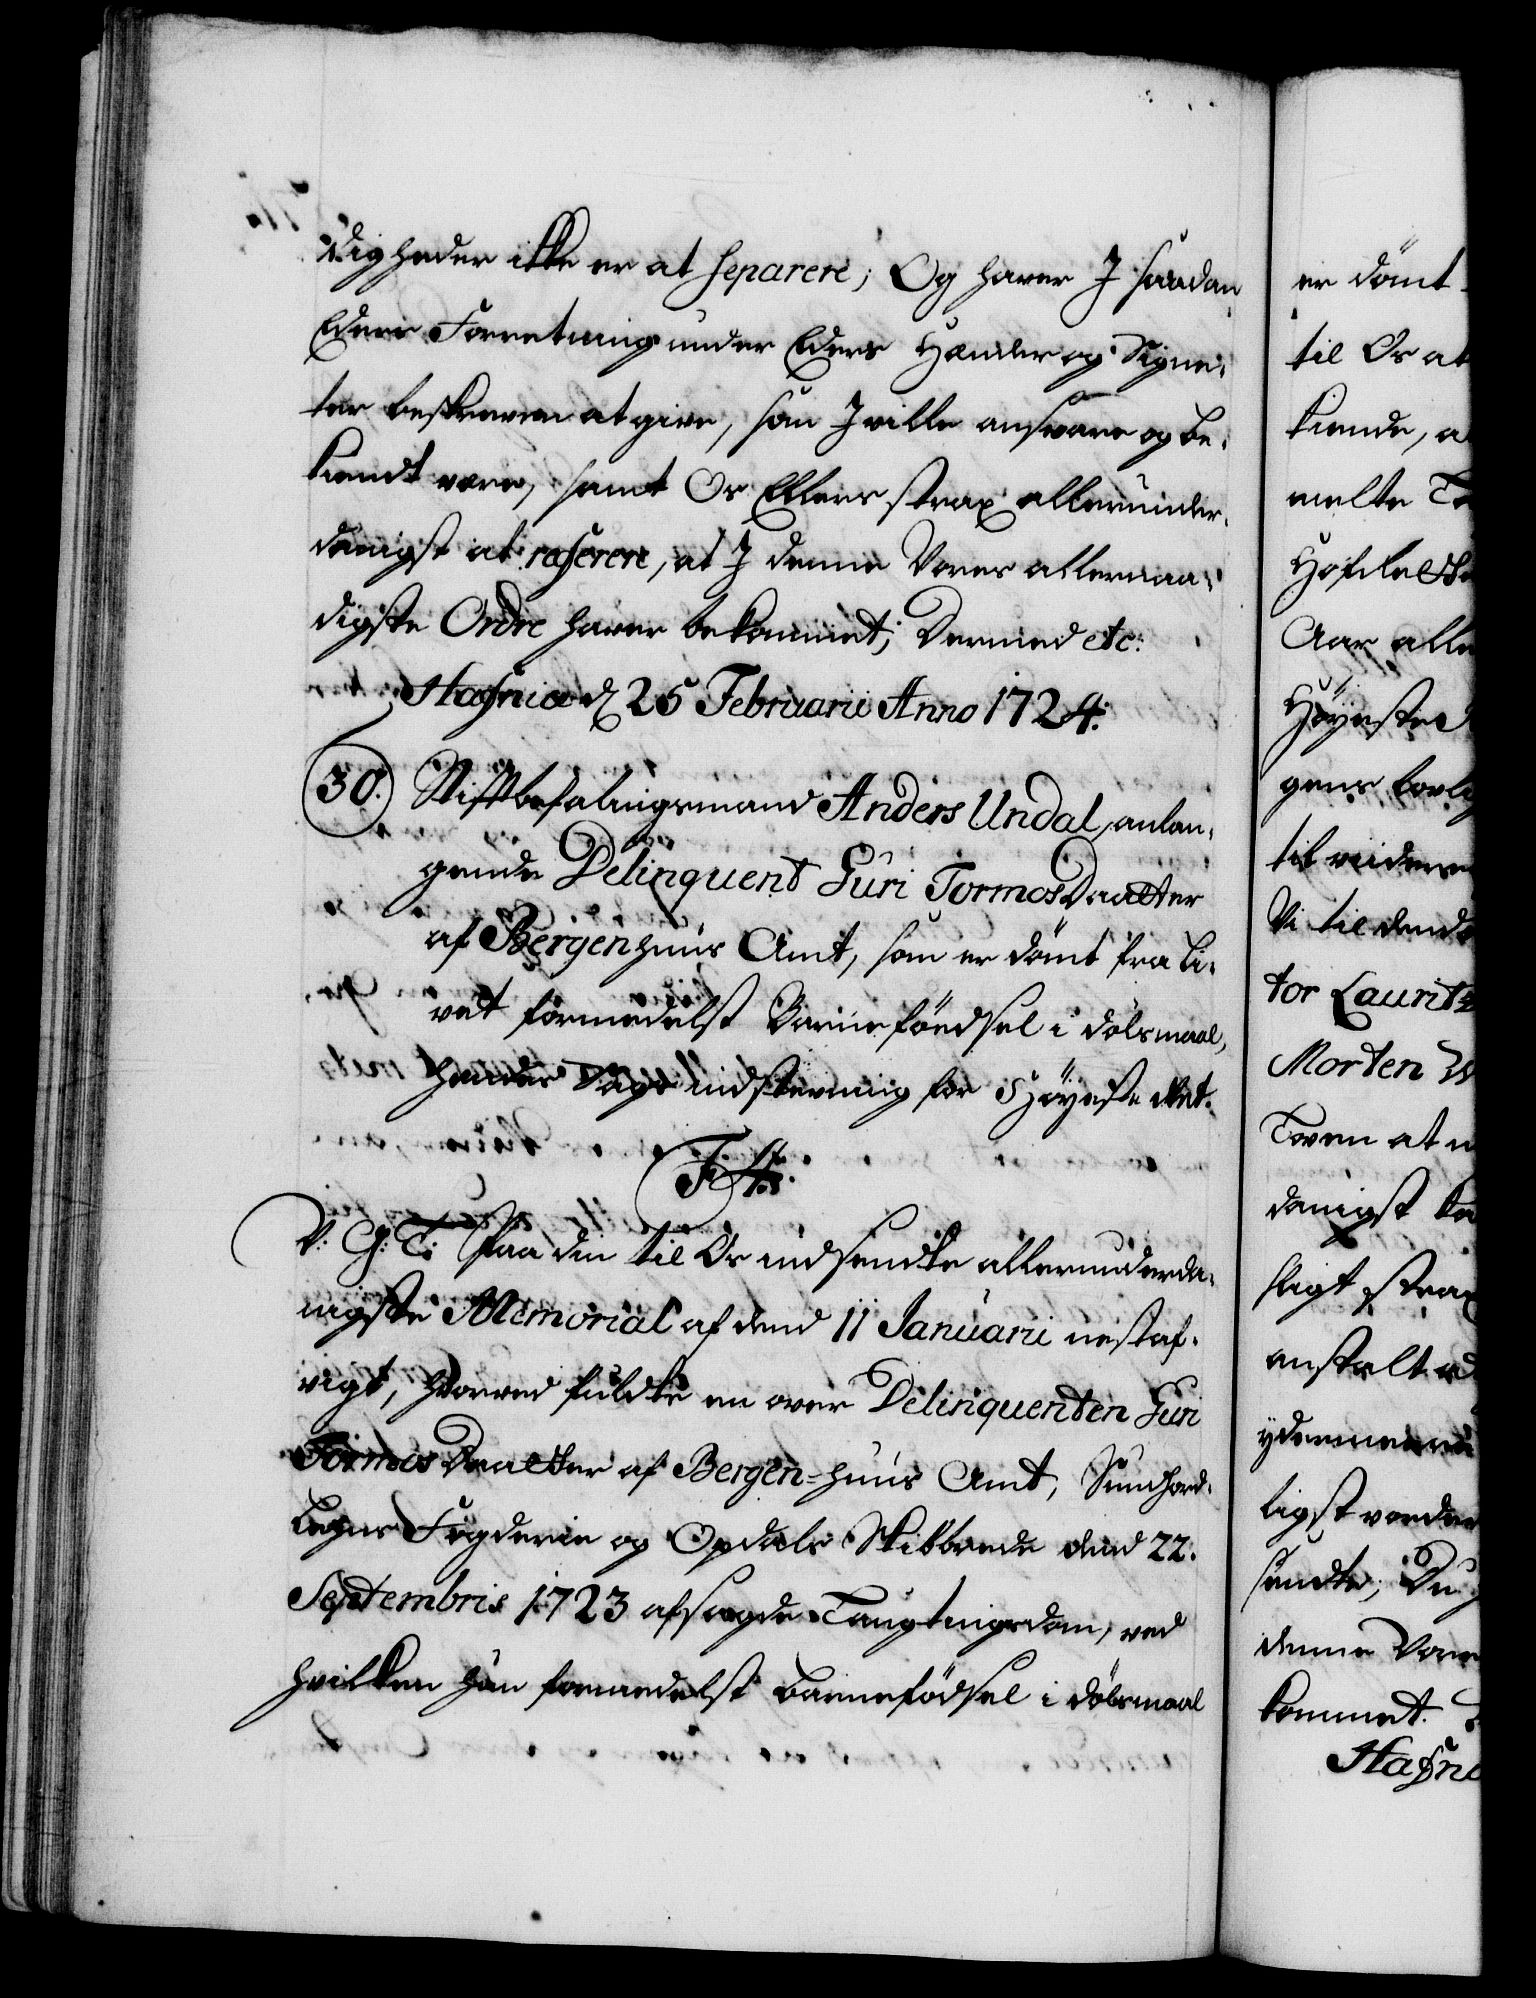 digheder ikke er at separere; Og haver I saadan
Eders Forretning under Eders Hænder og Signe-
ter beskreven at give, som I ville ansvare og be-
kiendt være, samt Os Ellers strax allerunder-
danigst at referere, at I denne Vores allernaa-
digste Ordre haver bekommet; Dermed etc:
Hafniæ d 25 Februarii Anno 1724.
30. Stiftbefalingsmand Anders Undal, anlan-
gende Delinquent Guri TormosDaatter
af Bergenhuus Amt, som er dömt fra Li-
vet formedelst Barneföedsel i dölsmaal,
hendes Sags indstevning for Höyeste Ret.
F 4.
V: G: T: Paa din til Os indsendte allerunderda-
nigste Memorial af dend 11 Januarii nestaf-
vigt, hvorved fuldte en over Delinquenten Guri
Tormos Daatter af Bergen-huus Amt, Sundhord-
Lehns Fogderie og Opdals Skibbrede dend 22.
Septembris 1723 afsagde Laugtingsdom, ved
hvilken hun formedelst Barnefödsel i dölsmaal
er dömt
til Os at
kiende, a
melte
Hofslette
Aar alle
Höyeste
gens lovlig
til videre
Vi til dend
tor Lauritz
Morten
Loven at
danigst
sligt strax
anstalt
ydermeere
ligst vorder
sendte; Du
denne Vores
kommet.
Hafni